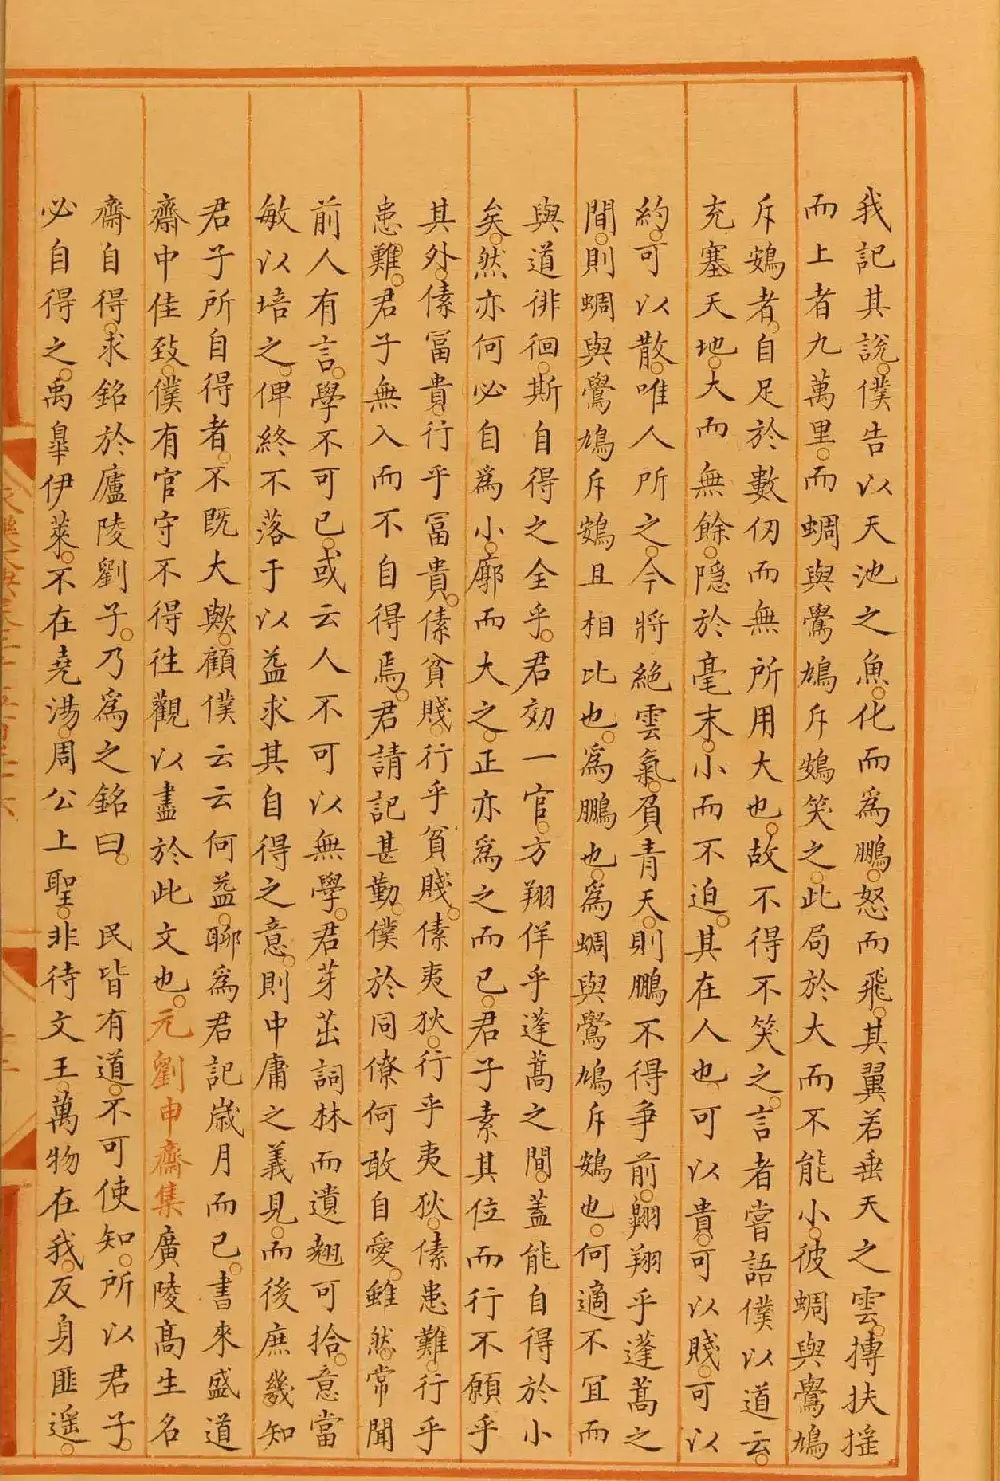 我記其說。僕告以天池之魚。化而爲鵬。怒而飛。其翼若垂天之雲。搏扶搖
而上者九萬里。而蜩與鷽鳩斥鴳笑之。此局於大而不能小。彼蜩與鷽鳩
斥鴳者。自足於數仞而無所用大也。故不得不笑之。言者嘗語僕以道云。
充塞天地。大而無餘。隱於毫末。小而不迫。其在人也。可以貴。可以賤。可以
約。可以散。唯人所之。今將絕雲氣。負青天。則鵬不得爭前。翶翔乎蓬蒿之
間。則蜩與鷽鳩斥鴳且相比也。爲鵬也。爲蜩與鷽鳩斥鴳也。何適不冝而
與道徘徊。斯自得之全乎。君効一官。方翔佯乎蓬蒿之間。蓋能自得於小
矣。然亦何必自爲小。廓而大之。正亦爲之而已。君子素其位而行不願乎
其外。傃冨貴。行乎冨貴。傃貧賤。行乎貧賤。傃夷狄。行乎夷狄。傃患難。行乎
患難。君子無入而不自得焉。君請記甚勤。僕於同僚何敢自愛。雖然。常聞
前人有言。學不可已。或云人不可以無學。君芽茁詞林而遺翹可拾。意當
敏以培之。俾終不落于以益求其自得之意。則中庸之義見。而後庶幾知
君子所自得者。不既大歟。顧僕云云何益。聊爲君記歲月而已。書來盛道
齋中佳致。僕有官守不得徃觀以盡於此文也。元劉申齋集廣陵高生名
齋自得。求銘於廬陵劉子。乃爲之銘曰。 民皆有道。不可使知。所以君子。
必自得之。禹皐伊萊。不在堯湯。周公上聖。非待文王。萬物在我。反身匪遥。